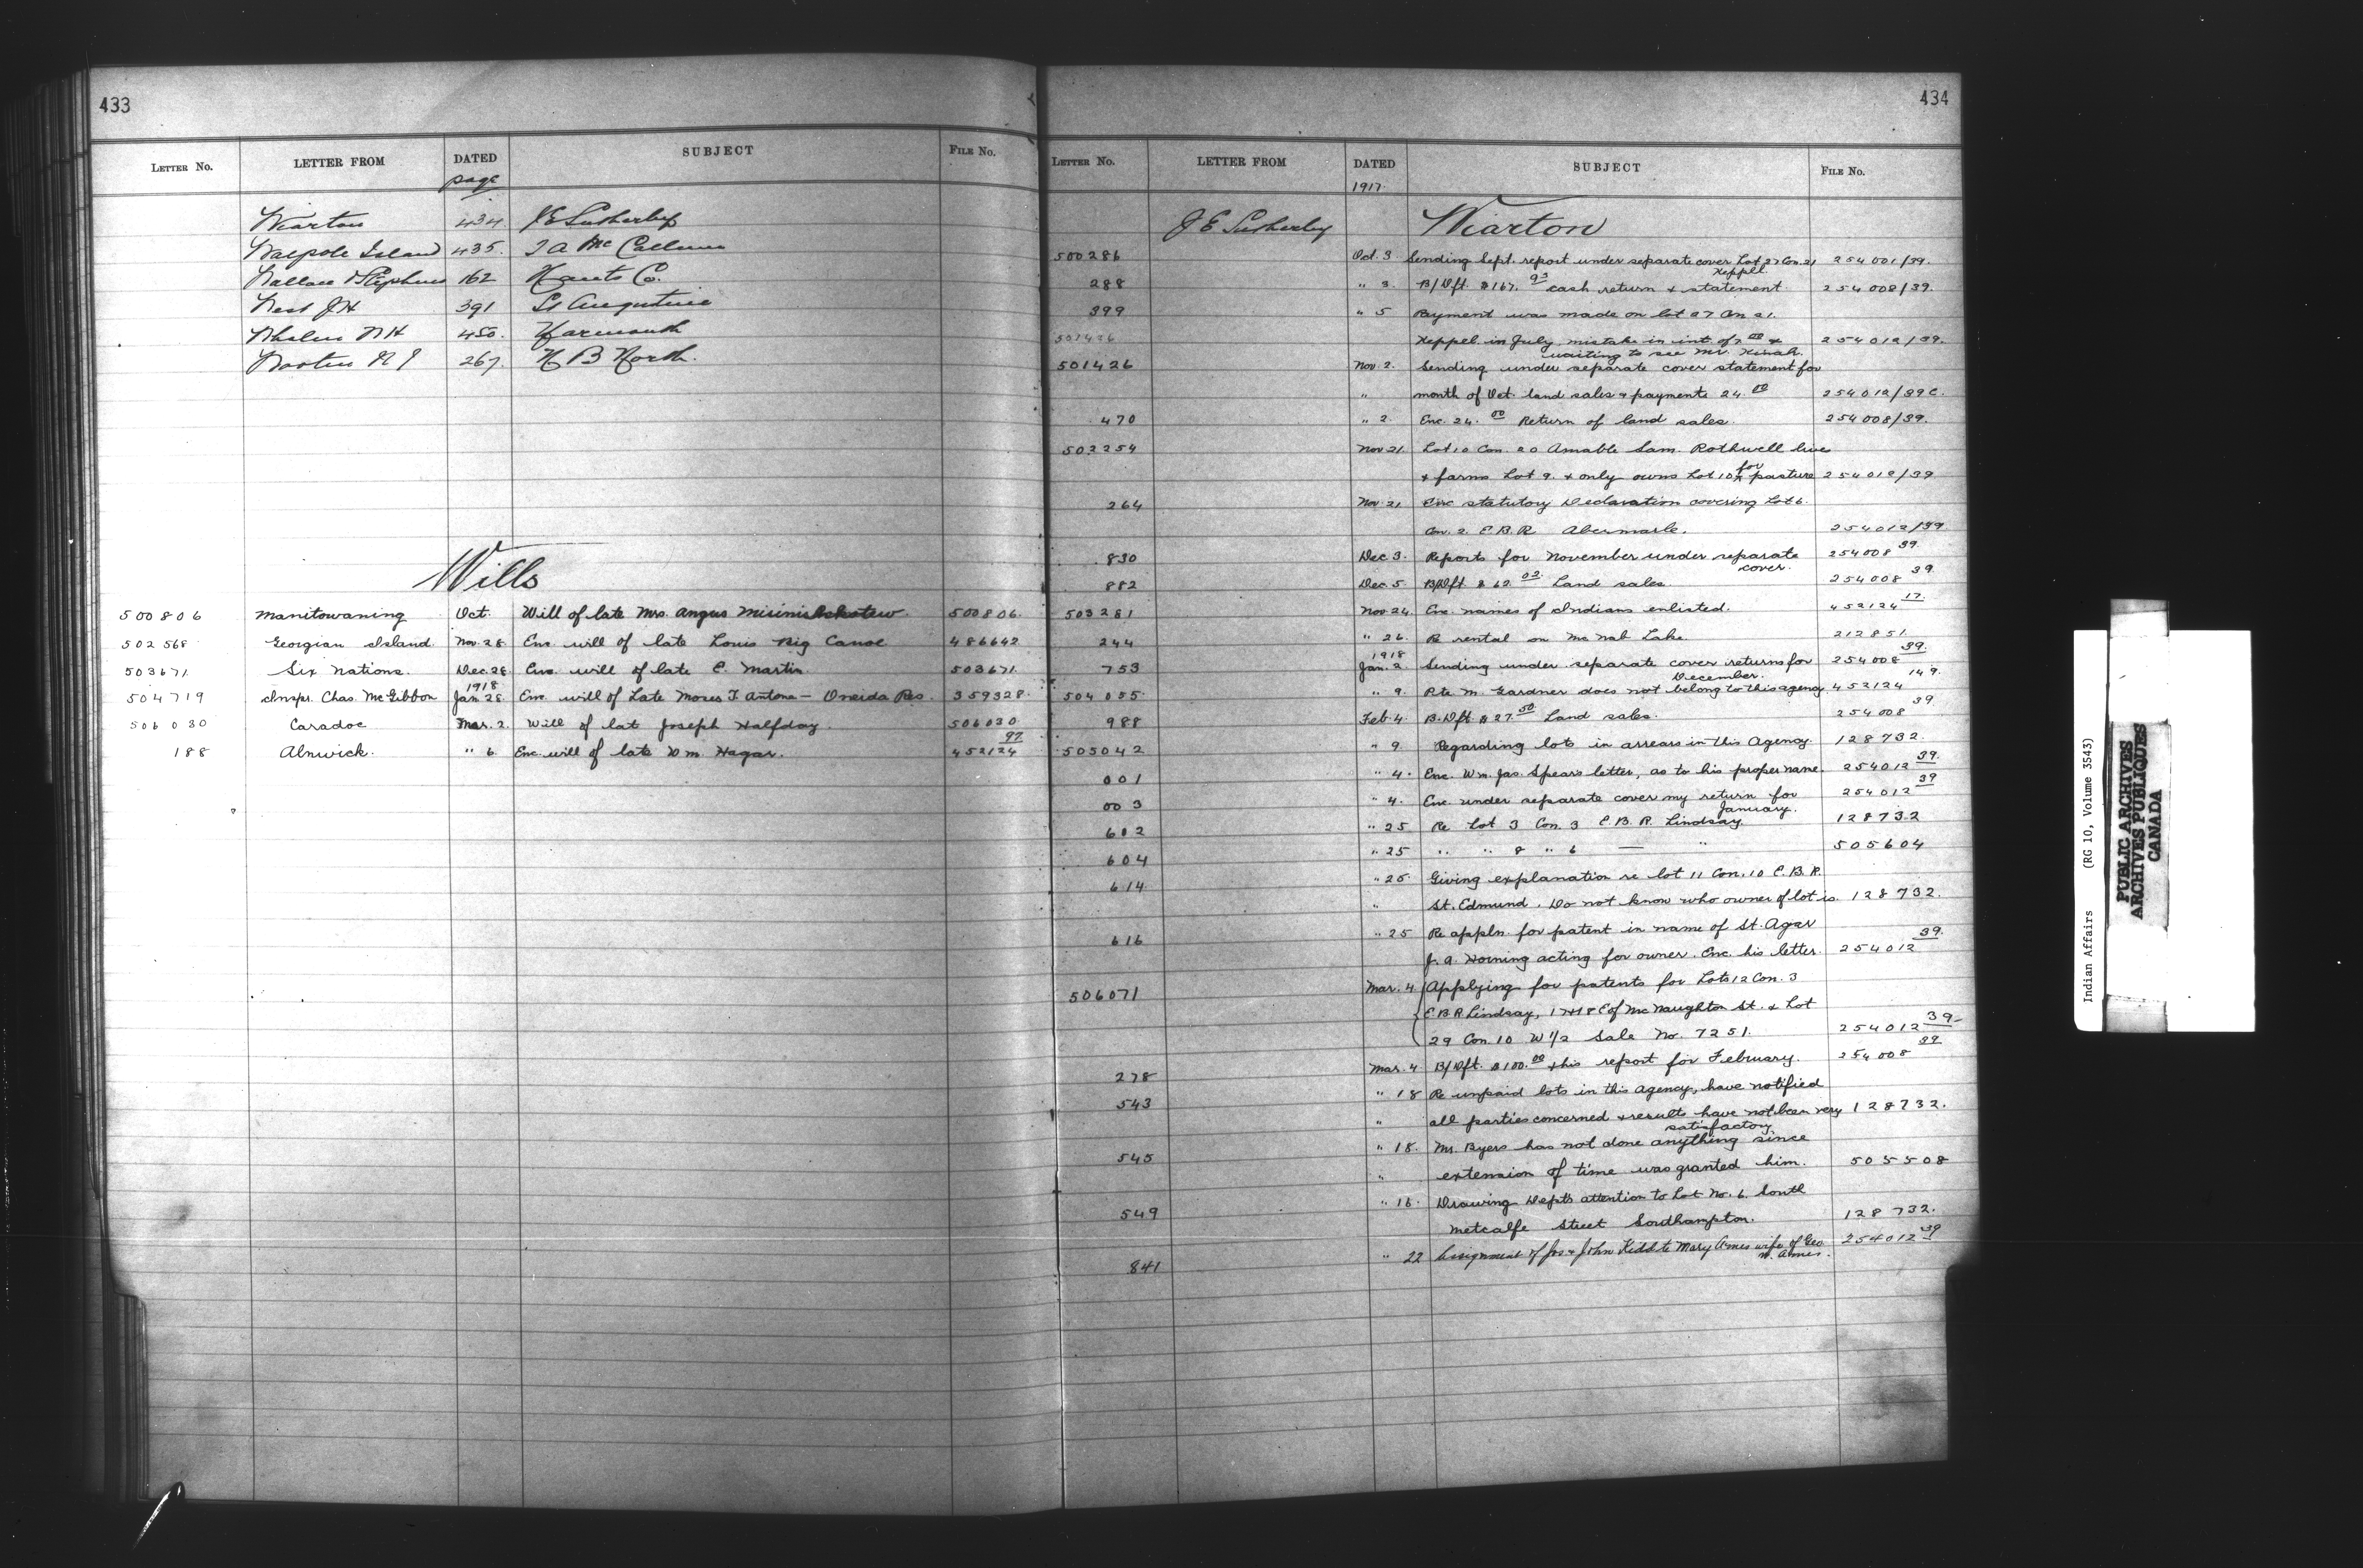 433
LETTER NO. LETTER FROM DATED SUBJECT FILE No.
page
Wiarton 434 J E Sutherby
Walpole Island 435. T A McCallum
Wallace Stephens 162 Hants Co.
West J H 391 St Augustine
Whalen N H 450. Yarmouth
267. N B North.
Wills
500806 Manitowaning Oct. Will of late Mrs. Angus 500806.
502568 Georgian Island. Nov. 28. Enc. will of late Louis Big Canoe 486642
503671 Six Nations. Dec. 28. Enc. will of late E. Martin. 503671.
1918
504719 Inspr. Chas. McGibbon Jan. 28. Enc. will of Late Moses T. Antone – Oneida Res. 359328.
506030 Caradoc Mar. 2. Will of late Joseph Halfday. 506030
188 Alnwick. " 6. Enc. will of late Wm. Hagar. 452124 97
434
LETTER NO. LETTER FROM DATED SUBJECT FILE No.
1917.
J E Sutherby Wiarton
500286 Oct. 3 Sending Sept. report under separate cover Lot 27 Con. 21 254001/39.
Keppel
288 " 3. B/Dft. $167. 93 cash return & statement. 254008/39.
399 " 5 Payment was made on lot 27 Con 21.
501426 Keppel in July, mistake in int. of 7.00 & 254012/39.
waiting to see Mr.
501426 Nov. 2. Sending under separate cover statement for
" month of Oct. land sales & payments 24.00 254012/39C.
470 " 2. Enc. 24.00 Return of land sales. 254008/39.
502254 Nov 21. Lot 10 Con. 20 Amable Sam. Rothwell lives
& farms Lot 9. & only owns Lot 10 for pasture 254012/39
264 Nov. 21 Enc statutory Declaration covering Lot 6.
Con. 2 E.B.R Abermarle. 254012/39.
830 Dec 3. Reports for November under separate 254008 39.
cover.
882 Dec 5. B/Dft. $62.02. Land sales. 254008 39.
503281 Nov. 24. Enc names of Indians enlisted. 452124 17.
244 " 26. Re rental on McNab Lake. 212851.
1918
753 Jan. 2. Sending under separate cover returns for 254008 39.
December.
504055. " 9. Pte M. Gardner does not belong to this agency 452124 149.
988 Feb. 4. B.Dft. $27.50 Land sales. 254008 39.
505042 " 9. Regarding lots in arrears in this Agency. 128732.
001 " 4. Enc. Wm. Jas. Spears letter, as to his proper name. 254012 39.
003 " 4. Enc. under separate cover my return for 254012 39
January.
602 " 25 Re Lot 3 Con. 3 E.B.R. Lindsay. 128732
604 " 25 " " 8 " 6 — " 505604
614. " 25. Giving explanation re lot 11 Con. 10 E.B.R.
" St. Edmund. Do not know who owner of lot is. 128732.
616 " 25 Re appln. for patent in name of St. Agar
J. A. Horning acting for owner. Enc. his letter. 254012 39.
506071 Mar. 4 Applying for patents for Lots 12 Con. 3
E.B.R Lindsay, 17 & 18 E of McNaughton St. & Lot
29 Con. 10 W 1/2 Sale No. 7251. 254012 39
278 Mar. 4 B/Dft. $100.00 & his report for February. 254008 39
543 " 18 Re unpaid lots in this agency, have notified
" all parties concerned & results have not been very 128732.
satisfactory
545 " 18. Mr. Byers has not done anything since
" extension of time was granted him. 505508
549 " 16. Drawing Dept's attention to Lot No. 6. South
Metcalfe Street Southampton. 128732.
841 " 22 Assignment of Jos & John Kidd to Mary Ames wife of Geo 254012 39
M. Ames.
Indian Affairs (RG 10, Volume 3543)
PUBLIC ARCHIVES
ARCHIVES PUBLIQUES
CANADA